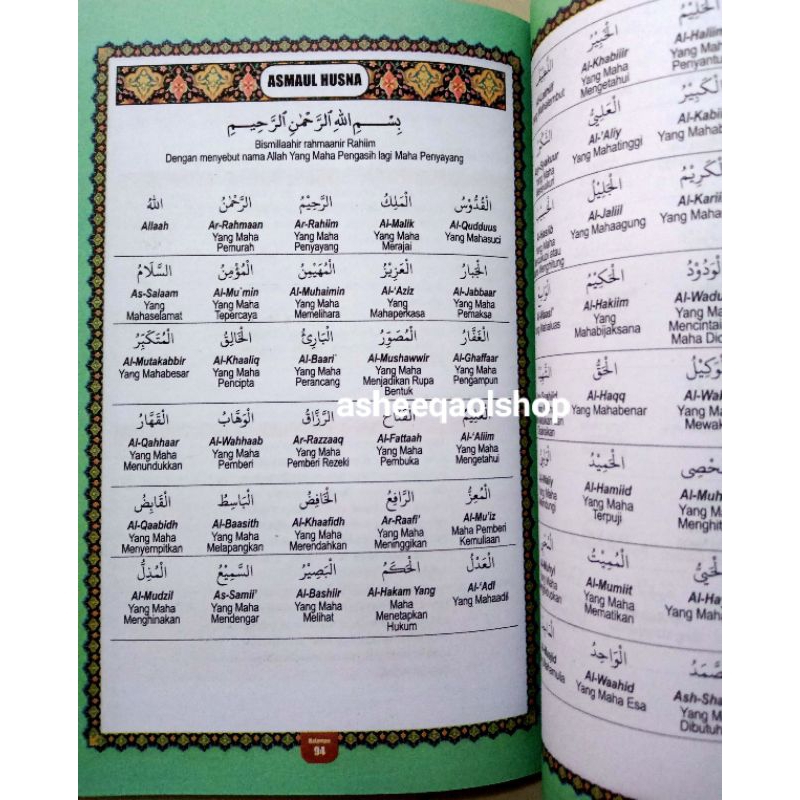 ASMAUL HUSNA
بِسْمِ اللهِ الرَّحْمٰنِ الرَّحِيْمِ
Bismillaahir rahmaanir Rahiim
Dengan menyebut nama Allah Yang Maha Pengasih lagi Maha Penyayang
اللهُ الرَّحْمٰنُ الرَّحِيْمُ الْمَلِكُ الْقُدُّوْسُ
Allaah Ar-Rahmaan Ar-Rahiim Al-Malik Al-Qudduus
Yang Maha Yang Maha Yang Maha Yang Mahasuci
Pemurah Penyayang Merajai
السَّلَامُ الْمُؤْمِنُ الْمُهَيْمِنُ الْعَزِيْزُ الْجَبَّارُ
As-Salaam Al-Mu`min Al-Muhaimin Al-'Aziz Al-Jabbaar
Yang Yang Maha Yang Maha Yang Yang Maha
Mahaselamat Tepercaya Memelihara Mahaperkasa Pemaksa
الْمُتَكَبِّرُ الْخَالِقُ الْبَارِئُ الْمُصَوِّرُ الْغَفَّارُ
Al-Mutakabbir Al-Khaaliq Al-Baari' Al-Mushawwir Al-Ghaffaar
Yang Mahabesar Yang Maha Yang Maha Yang Maha Yang Maha
Pencipta Perancang Menjadikan Rupa Pengampun
Bentuk
الْقَهَّارُ الْوَهَّابُ الرَّزَّاقُ الْفَتَّاحُ
Al-Qahhaar Al-Wahhaab Ar-Razzaaq Al-Fattaah Al-'Aliim
Yang Maha Yang Maha Yang Maha Yang Maha Yang Maha
Menundukkan Pemberi Pemberi Rezeki Pembuka Mengetahui
الْقَابِضُ الْبَاسِطُ الْخَافِضُ الرَّافِعُ الْمُعِزُّ
Al-Qaabidh Al-Baasith Al-Khaafidh Ar-Raafi' Al-Mu'iz
Yang Maha Yang Maha Yang Maha Yang Maha Maha Pemberi
Menyempitkan Melapangkan Merendahkan Meninggikan Kemuliaan
الْمُذِلُّ السَّمِيْعُ الْبَصِيْرُ الْحَكَمُ الْعَدْلُ
Al-Mudzil As-Samii' Al-Bashiir Al-Hakam Yang Al-'Adl
Yang Maha Yang Maha Yang Maha Maha Yang Mahaadil
Menghinakan Mendengar Melihat Menetapkan
Hukum
Halaman
94
asheeqaolshop
الْخَبِيْرُ الْحَلِيْمُ
Al-Khabiiir Al-Haliim
Yang Maha Yang Maha
Mengetahui Penyantun
الْعَلِيُّ الْكَبِيْرُ
Al-'Aliy
Yang Mahatinggi Yang Maha
الْجَلِيْلُ الْكَرِيْمُ
Al-Jaliil
Yang Mahaagung Yang Maha
الْحَكِيْمُ الْوَدُوْدُ
Al-Hakiim
Yang Yang Maha
Mahabijaksana
الْحَقُّ الْوَكِيْلُ
Al-Haqq
Yang Mahabenar Yang Maha
الْحَمِيْدُ
Al-Hamiid
Yang Maha Yang Maha
Terpuji
الْمُمِيْتُ الْحَيُّ
Al-Mumiit
Yang Maha Yang Maha
Mematikan
الْوَاحِدُ
Al-Waahid
Yang Maha Esa Yang Maha